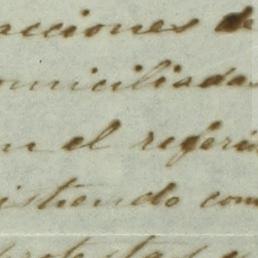 acciones de
omiciliadas
n el referi
istiendo com